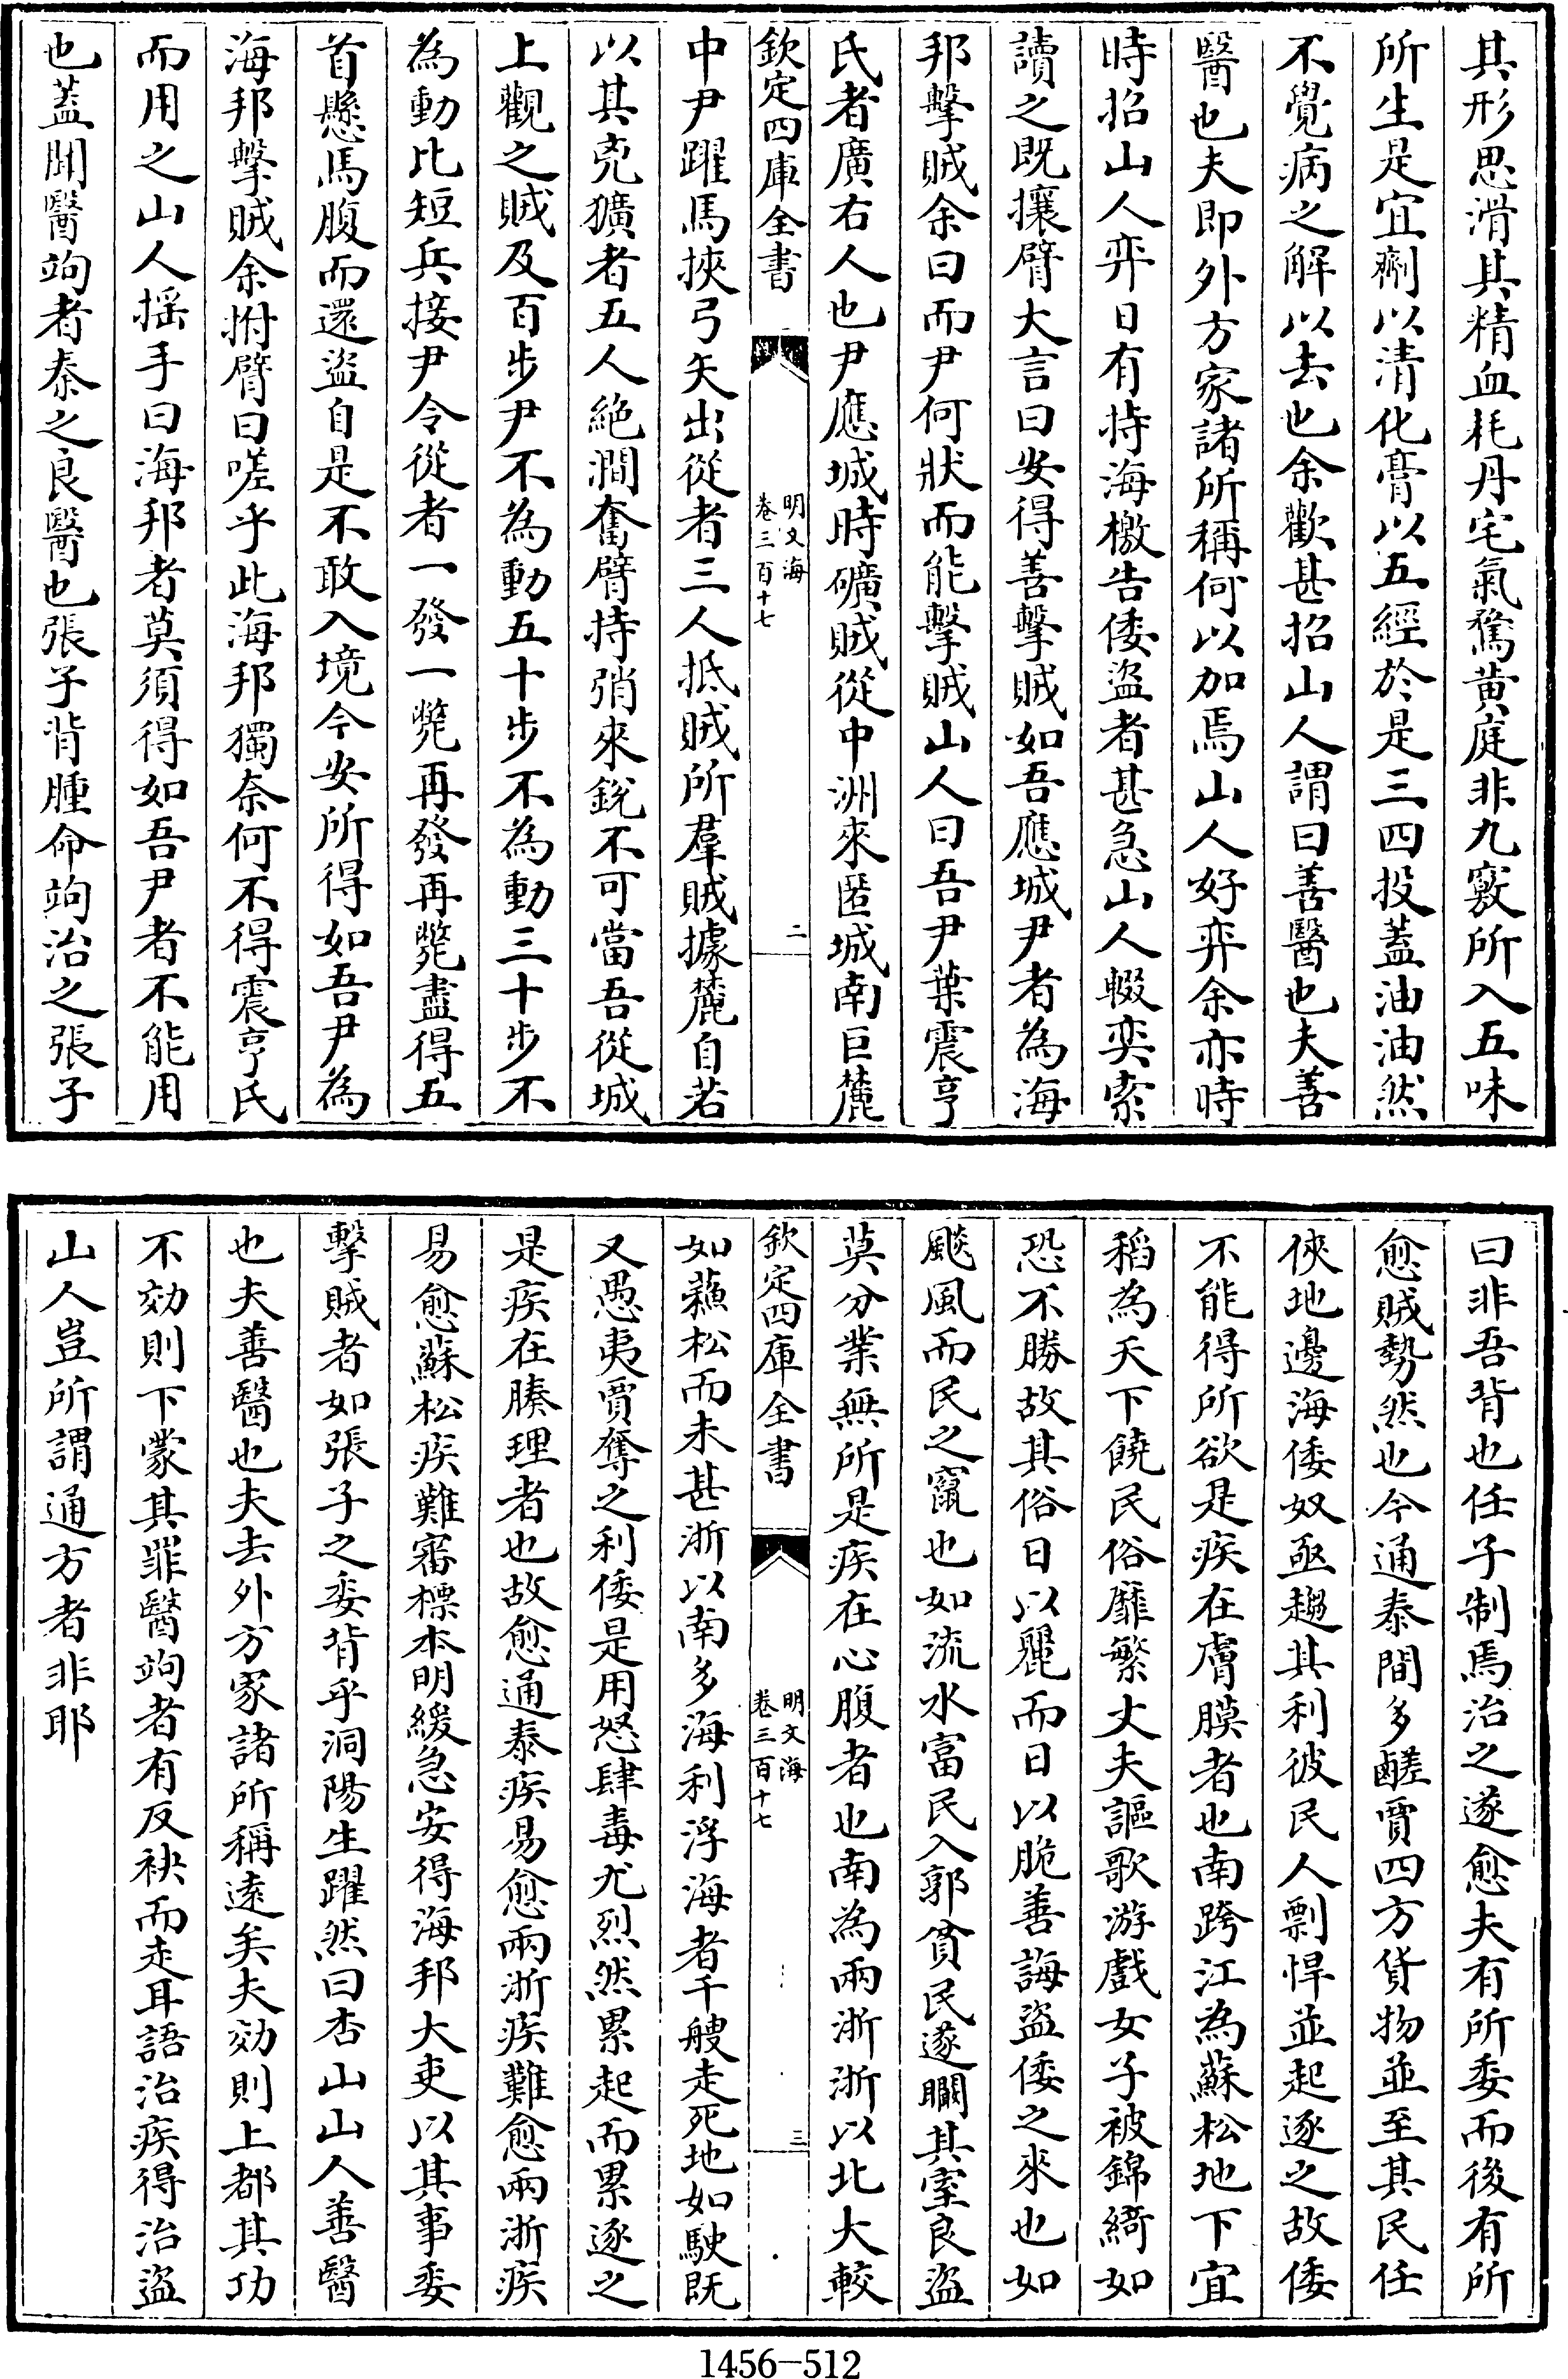 其形思滑其精血耗丹宅氣騖黄庭非九竅所入五味
所生是宜劑以清化膏以五經於是三四投蓋油油然
不覺病之解以去也余歡甚招山人謂曰善醫也夫善
醫也夫即外方家諸所稱何以加焉山人好弈余亦時
時招山人弈日有持海檄告倭盜者甚急山人輟奕索
讀之既攘臂大言曰安得善擊賊如吾應城尹者為海
邦擊賊余曰而尹何狀而能擊賊山人曰吾尹葉震亨
氏者廣右人也尹應城時礦賊從中洲來匿城南巨麓
欽定四庫全書
明文海
卷三百十七
二
中尹躍馬挾弓矢出從者三人抵賊所羣賊據麓自若
以其兇獷者五人絶澗奮臂持弰來銳不可當吾從城
上觀之賊及百步尹不為動五十步不為動三十步不
為動比短兵接尹令從者一發一斃再發再斃盡得五
首懸馬腹而還盜自是不敢入境今安所得如吾尹為
海邦擊賊余拊臂曰嗟乎此海邦獨奈何不得震亨氏
而用之山人揺手曰海邦者莫須得如吾尹者不能用
也蓋聞醫竘者秦之良醫也張子背腫命竘治之張子
曰非吾背也任子制焉治之遂愈夫有所委而後有所
愈賊勢然也今通泰間多鹺賈四方貨物並至其民任
俠地邊海倭奴亟趨其利彼民人剽悍並起逐之故倭
不能得所欲是疾在膚膜者也南跨江為蘇松地下宜
稻為天下饒民俗靡繁丈夫謳歌游戲女子被錦綺如
恐不勝故其俗日以麗而日以脆善誨盜倭之來也如
颷風而民之竄也如流水富民入郭貧民遂瞯其室良盜
莫分業無所是疾在心腹者也南為兩浙浙以北大較
欽定四庫全書
明文海
卷三百十七
三
如蘓松而未甚浙以南多海利浮海者千艘走死地如駛既
又愚夷賈奪之利倭是用怒肆毒尤烈然累起而累逐之
是疾在腠理者也故愈通泰疾易愈兩浙疾難愈兩浙疾
易愈蘇松疾難審標本明緩急安得海邦大吏以其事委
擊賊者如張子之委背乎洞陽生躍然曰杏山山人善醫
也夫善醫也夫去外方家諸所稱逺矣夫効則上都其功
不効則下蒙其罪醫竘者有反袂而走耳語治疾得治盜
山人豈所謂通方者非耶
1456-512